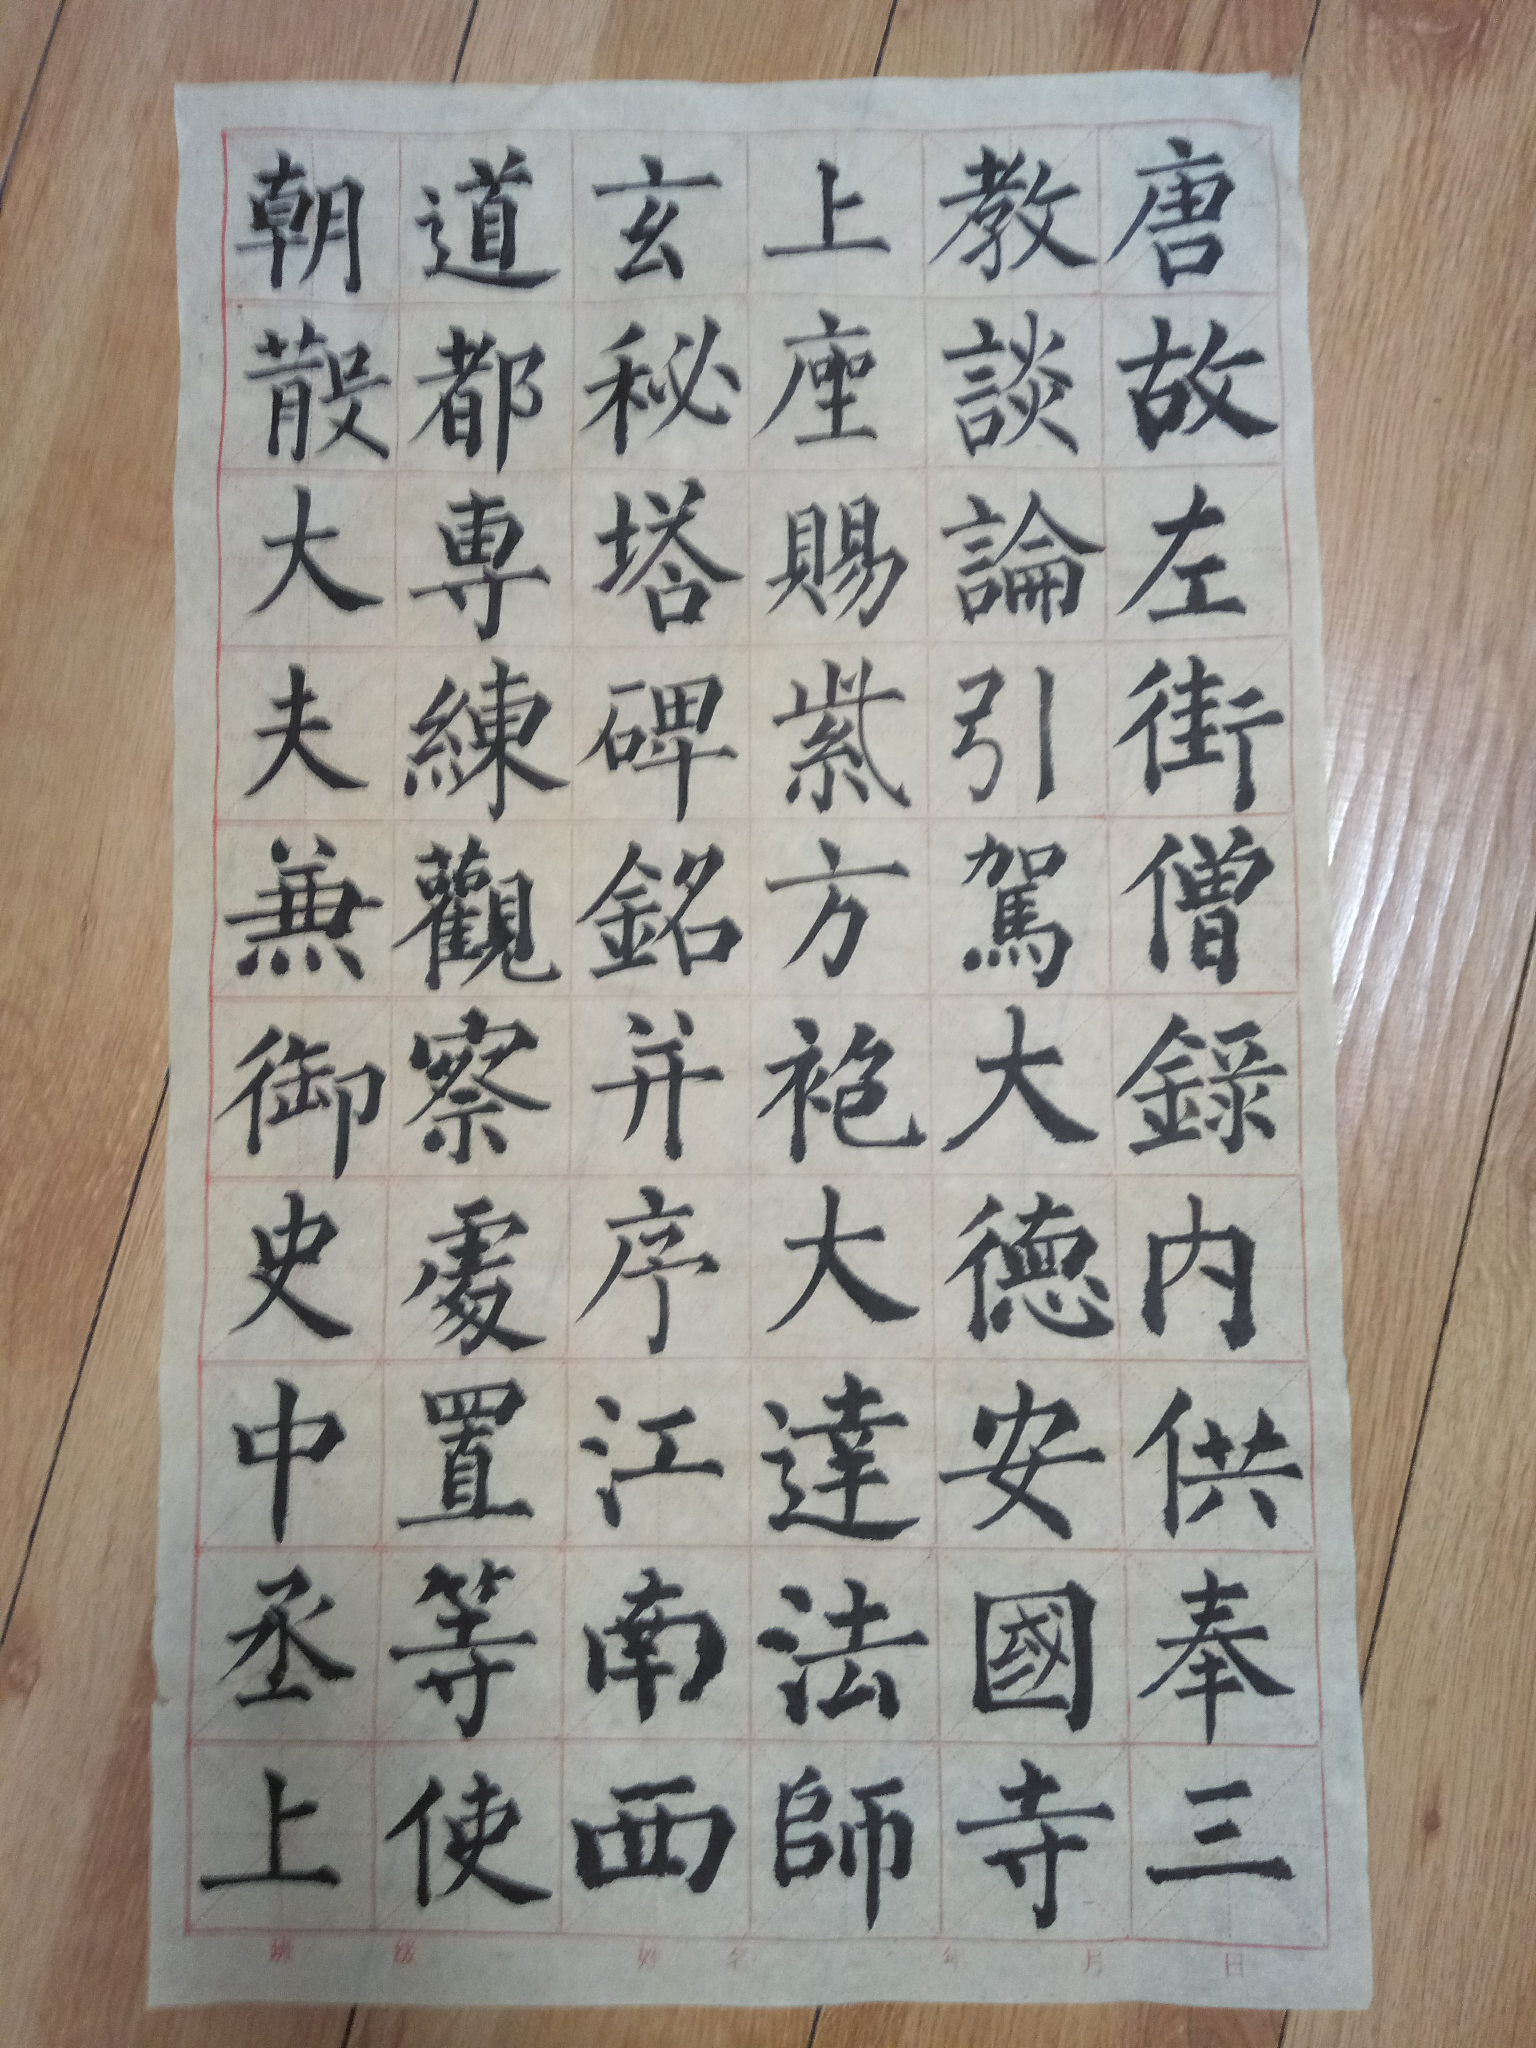 唐故左街僧録内供奉三
教談論引駕大德安國寺
上座賜紫方袍大達法師
玄秘塔碑銘并序江南西
道都專練觀察處置等使
朝散大夫兼御史中丞上
班 级 姓 名 年 月 日